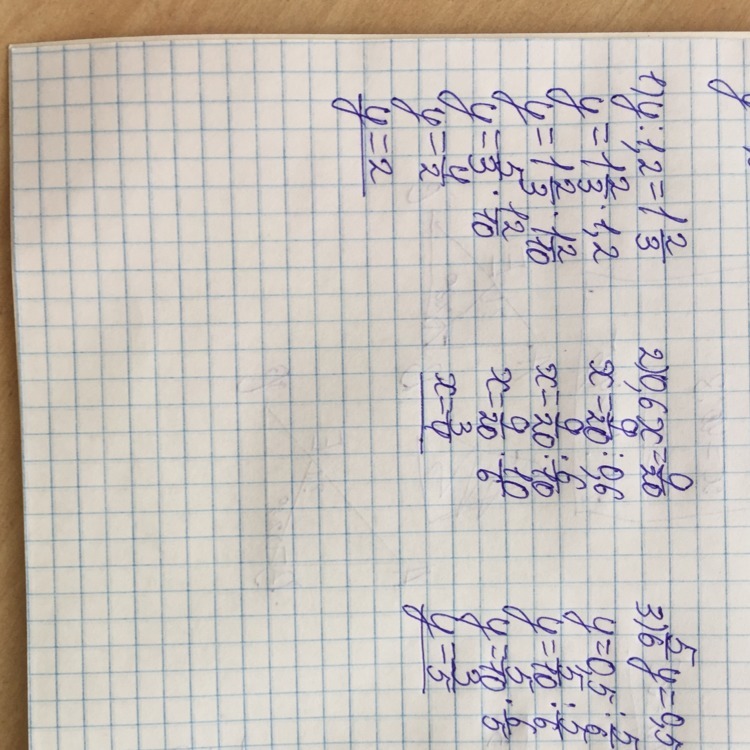 1) y : 1,2 = 1 2/3
y = 1 2/3 · 1,2
y = 1 2/3 · 1 2/10
y = 5/3 · 12/10
y = 4/2
y = 2
2) 0,6x = 9/20
x = 9/20 : 0,6
x = 9/20 : 6/10
x = 9/20 · 10/6
x = 3/4
3) 5/6 y = 0,5
y = 0,5 : 5/6
y = 5/10 : 5/6
y = 5/10 · 6/5
y = 3/5